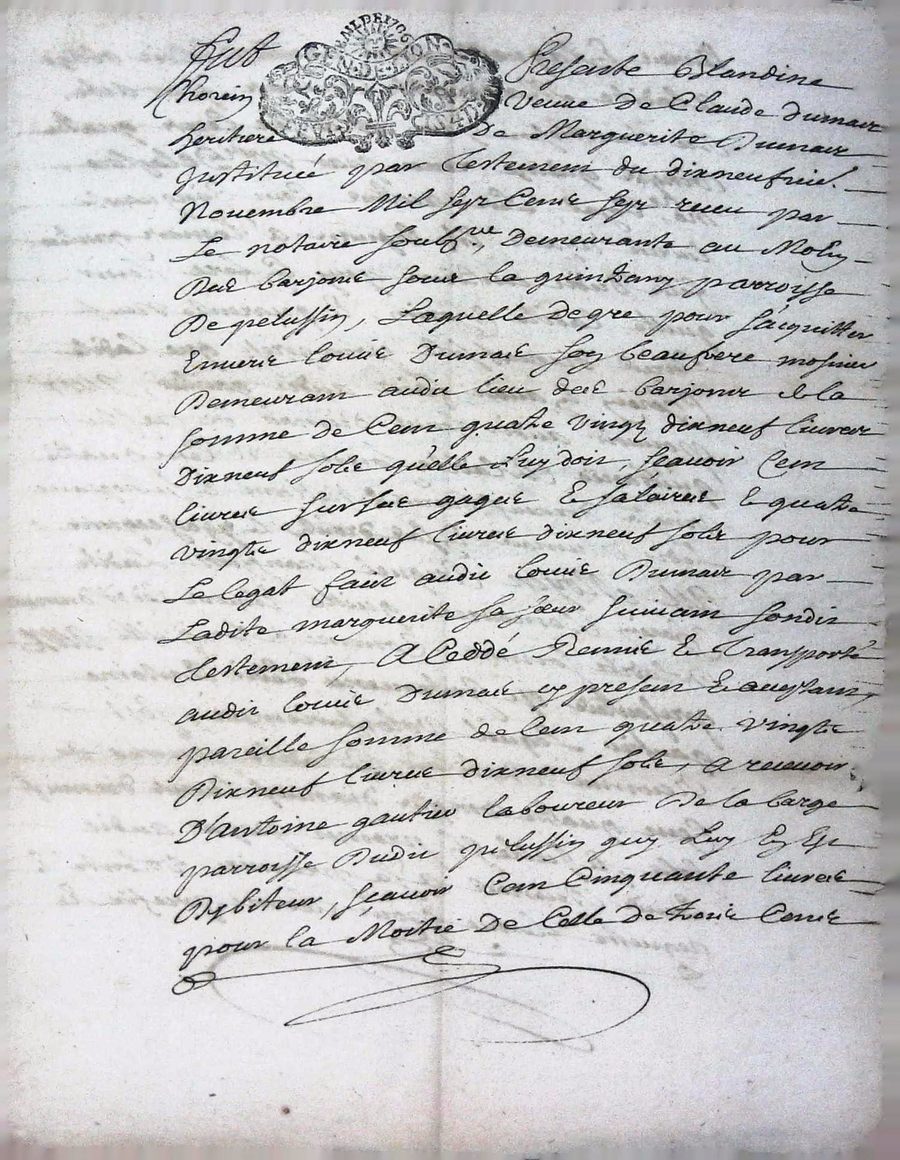 GEN.DE.LION
Fut Presente Blandine
Thorein Veuve de Claude Dumas
heritiere de Marguerite Dumas
Instituée par Testement du dixneufvie.
Novembre Mil sept Cents sept receu par
Le notaire soubsne, Demeurante au Molin
Des barjons soubs la parroisse
De pelussin, Laquelle de gre pour s'acquitter
Envers Louis Dumas son beaufrere mosnier
Demeurant audit lieu des barjons de la
somme de Cent quatre vingtz dixneuf livres
Dixneuf sols qu'elle luy doit, sçavoir Cent
livres sur ses gages & salaires & quatre
vingts dixneuf livres dixneuf sols pour
Le legat fait audit Louis Dumas par
Ladite marguerite sa sœur suivant sondit
Testement, A Ceddé Remis & Transporté
audit Louis Dumas cy present & acceptant,
pareille somme de Cent quatre vingts
Dixneuf livres dixneuf sols, a recevoir
D'antoine gautier laboureur De la barge
parroisse Dudit pelussin quy Luy En Est
Debiteur, sçavoir Cent Cinquante livres
pour la Moitié De Celle de trois Cents